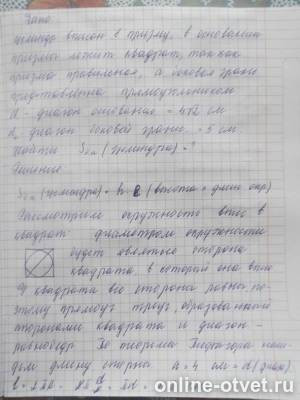 Дано
цилиндр вписан в призму, в основании
призмы лежит квадрат, так как
призма правильная, а боковая грань
представлена прямоугольником
d - диагон основания = 4√2 см
d₁ диагон боковой грани = 5 см
Найти Sбп (цилиндра) = ?
Решение
Sбп (цилиндра) = h · l (высота * длина окр)
Рассмотрим окружность впис в
квадрат диаметром окружности
будет являться сторона
квадрата, в которой она впис
У квадрата все стороны равны, по
этому прямоуг треуг, образованный
сторонами квадрата и диагон-
равнобедр. По теореме Пифагора най-
дем длину стороны a = 4 см = d (диам)
online-otvet.ru